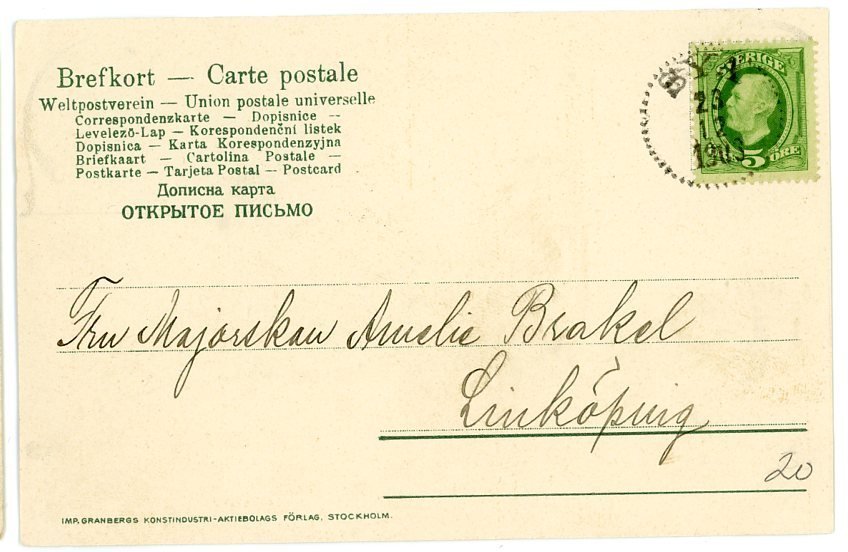 Brefkort — Carte postale
Weltpostverein — Union postale universelle
Correspondenzkarte — Dopisnice —
Levelező-Lap — Korespondenční listek
Dopisnica — Karta Korespondenzyjna
Briefkaart — Cartolina Postale —
Postkarte — Tarjeta Postal — Postcard
Дописна карта
ОТКРЫТОЕ ПИСЬМО
SVERIGE
12
1903
5 ÖRE
Fru Majorskan Amelie Brakel
Linköping
20
IMP. GRANBERGS KONSTINDUSTRI-AKTIEBOLAGS FÖRLAG, STOCKHOLM.